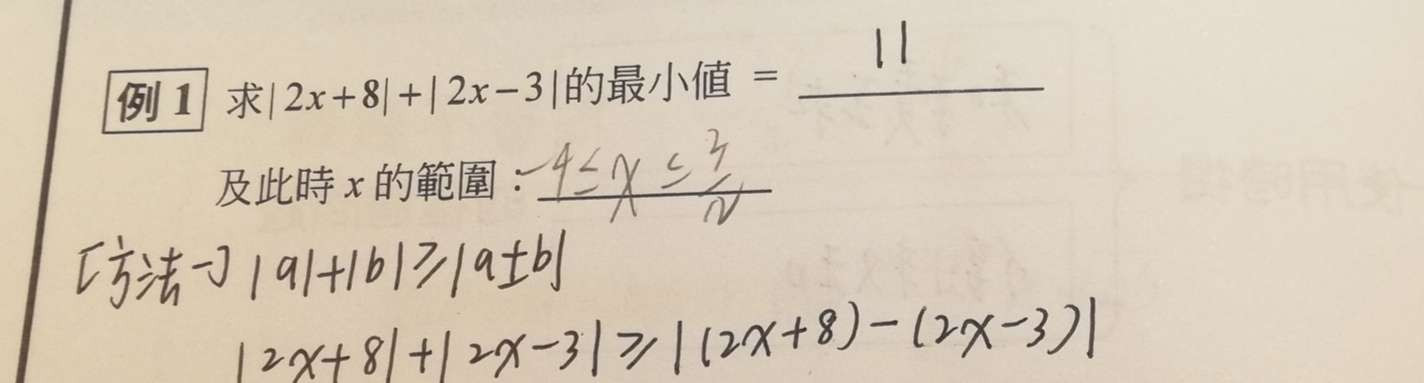 例 1 求|2x+8|+|2x-3|的最小值 = 11
及此時 x 的範圍：-4≤x≤3/2
[方法一] |a|+|b|≥|a±b|
|2x+8|+|2x-3|≥|(2x+8)-(2x-3)|